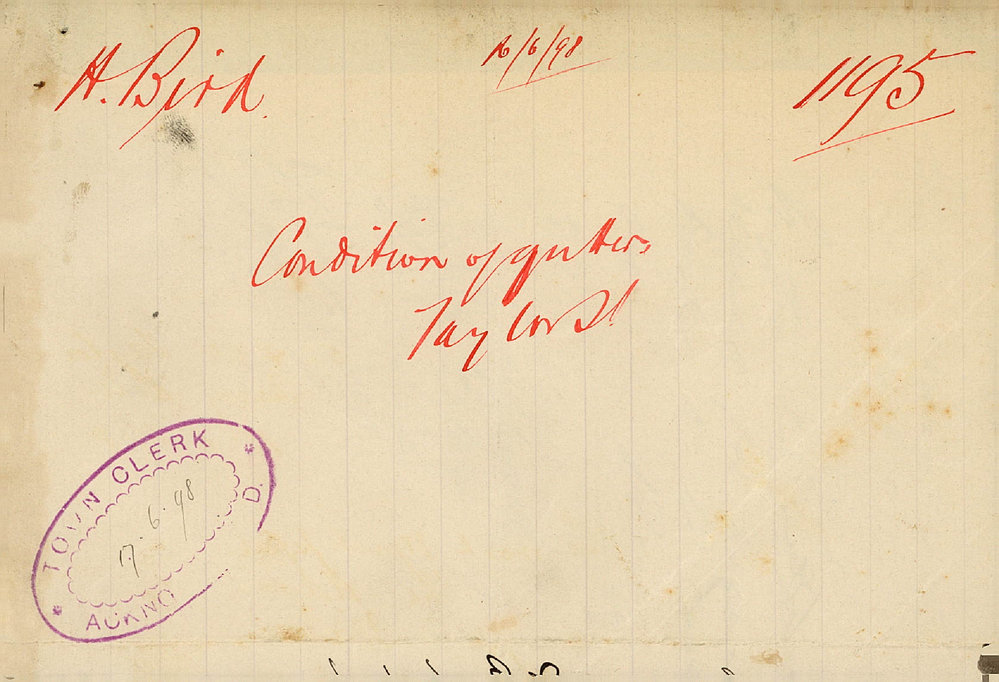 H. Bird.
16/6/98
1195
Condition of gutters
Taylor St
TOWN CLERK
17.6.98
ACKNO D.